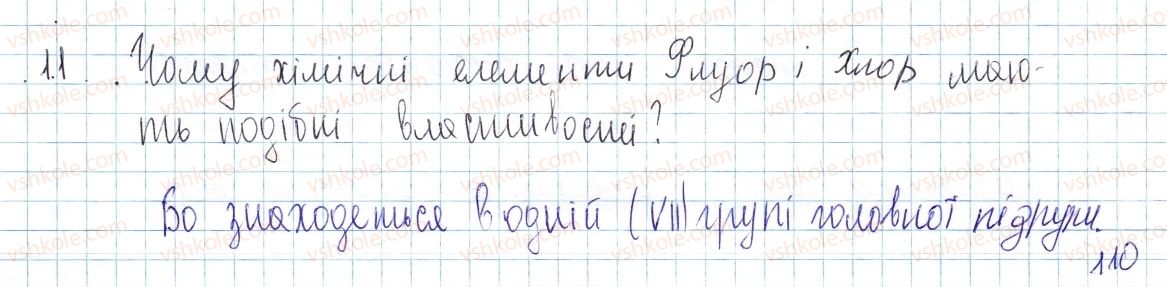 1.1. Чому хімічні елементи Флуор і Хлор маю-
ть подібні властивості?
Бо знаходеться в одній (VII) групі головної підгрупи.
110